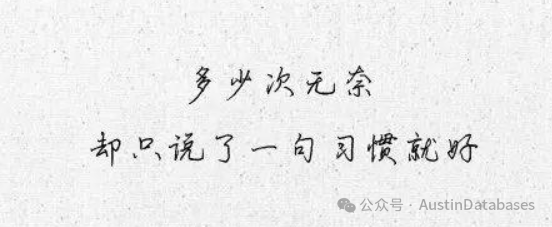 多少次无奈
却只说了一句习惯就好
公众号 · AustinDatabases